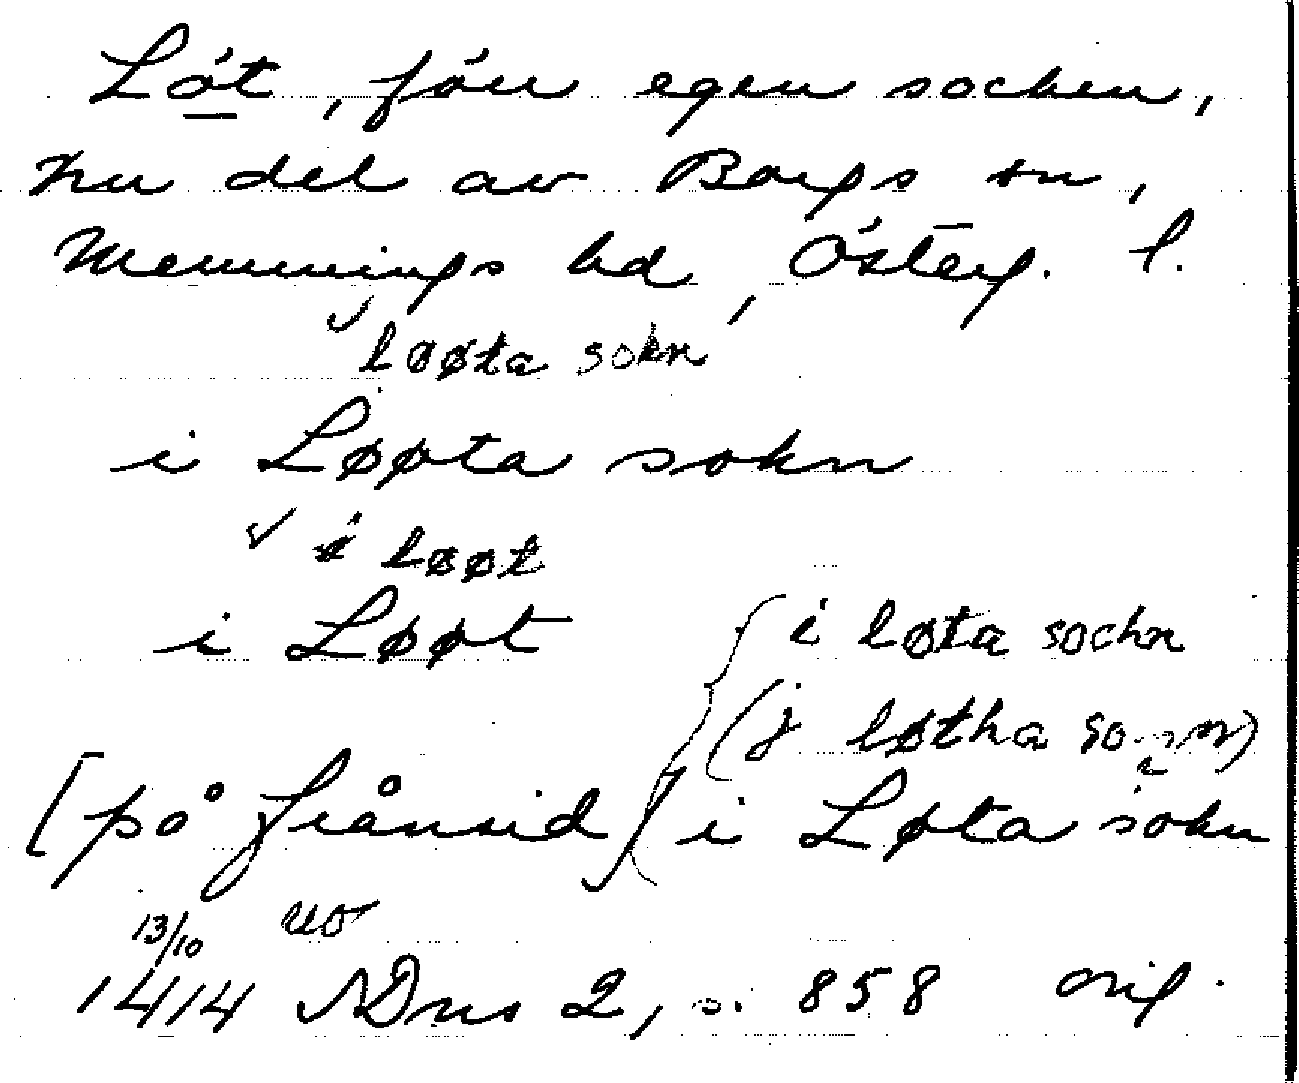 Löt, förr egen socken,
nu del av Borgs sn,
Memmings hd, Österg. l.
løøta sokn
i Løøta sokn
i løøt
i Løøt
i løta sochn
(j løtha
[på frånsid] i Løta sokn
13/10 uo
1414 SDns 2, s. 858 orig.